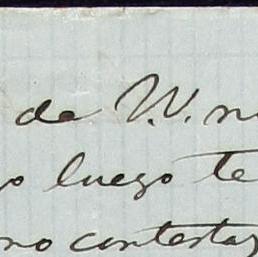 de W. n
o luego te
no contesta